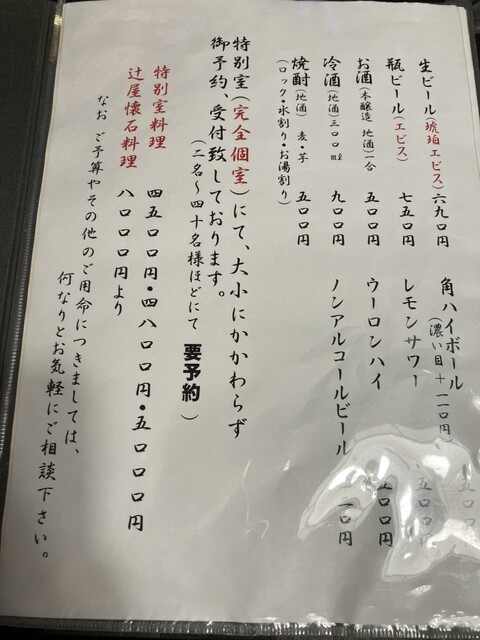 生ビール(琥珀エビス)六九〇円
瓶ビール(エビス) 七五〇円
お酒(本醸造 地酒)一合 五〇〇円
冷酒(地酒)三〇〇㎖ 九〇〇円
焼酎(地酒) 麦・芋 五〇〇円
(ロック・水割り・お湯割り)
角ハイボール 五〇〇円
(濃い目+一一〇円)
レモンサワー 五〇〇円
ウーロンハイ 五〇〇円
ノンアルコールビール 一〇円
特別室(完全個室)にて、大小にかかわらず
御予約、受付致しております。
(二名~四十名様ほどにて 要予約)
特別室料理 四五〇〇円・四八〇〇円・五〇〇〇円
辻屋懐石料理 八〇〇〇円より
なお ご予算やその他のご用命につきましては、
何なりとお気軽にご相談下さい。